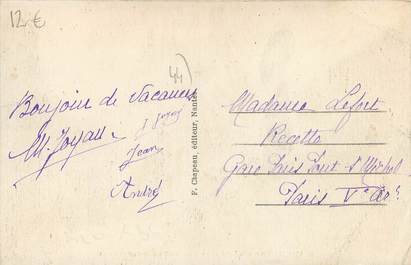 12 €
44
Bonjour de Vacances
M. Joyau
J Joyau
Jean
André
F. Chapeau, éditeur, Nantes
Madame Lefort
Recette
Gare Paris Pont-St Michel
Paris Ve Arr